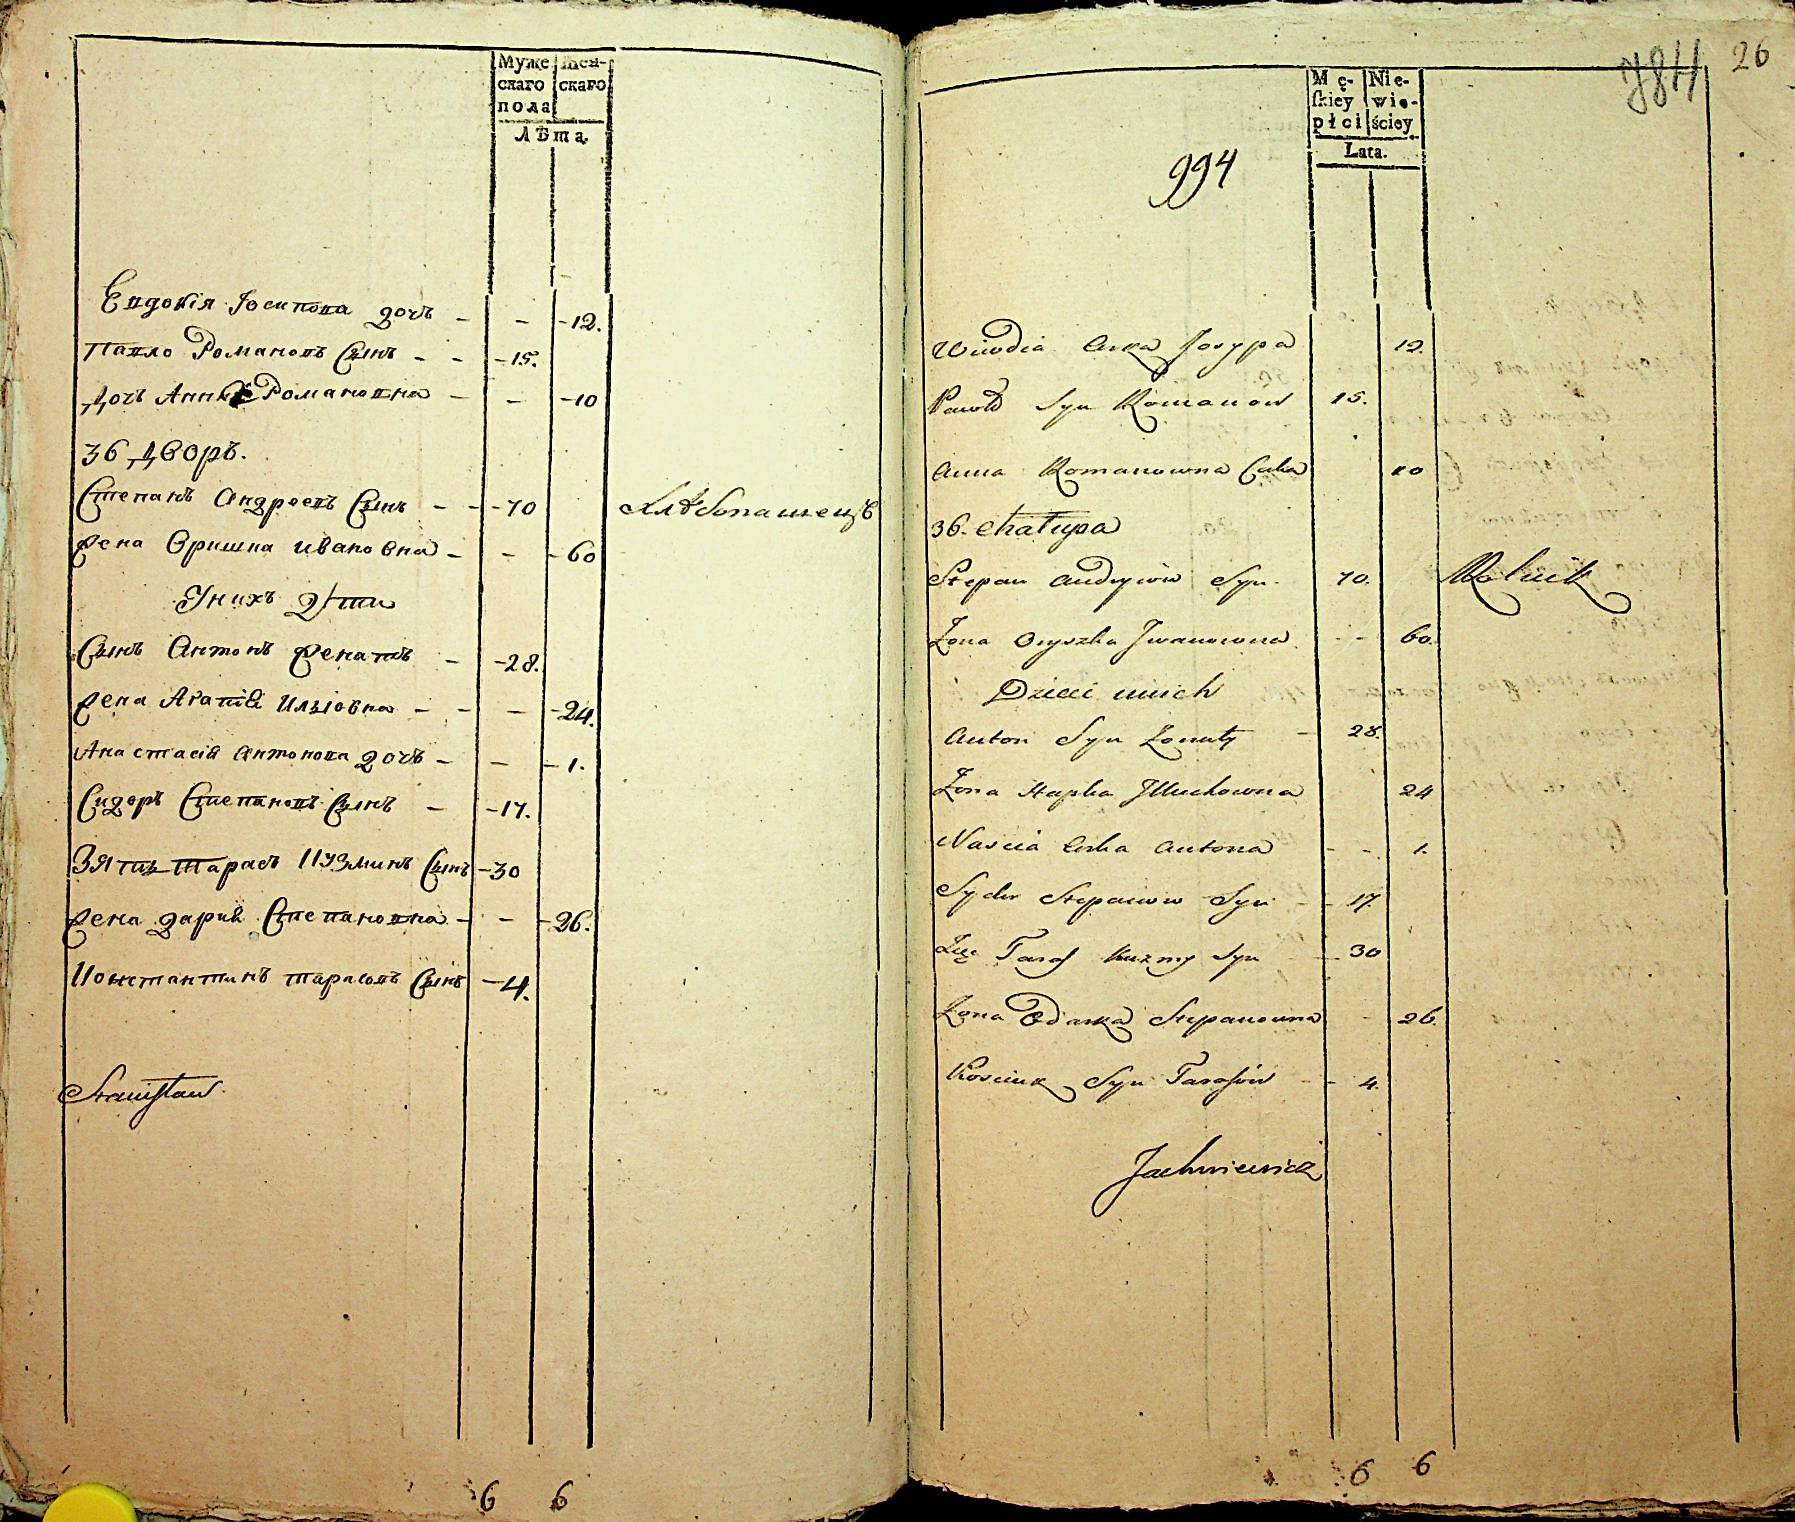 Муже
скаго
пола
Жен-
скаго
Лѣта.
Евдокія Іосипова дочь - - -12.
Павло Романовъ Сынъ - - -15.
Дочь Анна Романовна - - -10
36 Дворъ.
Степанъ Андреевъ Сынъ - - -70 Хлѣбопашецъ
Жена Оришка Ивановна - - -60
У нихъ дѣти
Сынъ Антонъ Женатъ - -28.
Жена Агапія Ильіовна - - - -24.
Анастасія Антонова дочь - - -1.
Сидоръ Степановъ Сынъ - -17.
Зять Тарасъ Кузминъ Сынъ -30
Жена Дария Степановна - - -26.
Константинъ Тарасовъ Сынъ -4.
Stanisław
6 6
784 26
994
Mę-
skiey
płci
Nie-
wie-
ściey
Lata.
Wiwdia Curka Josypa 12.
Pawło Syn Romanow 15.
Anna Romanowna Curka 10
36. Chałupa
Stepan Andryiow Syn 70. Rolnik
Żona Oryszka Jwanowna - - 60.
Dzieci u nich
Anton Syn Żonaty - 28.
Żona Hapka Jlluchowna 24
Nascia Curka Antona - - 1.
Sydor Stepanow Syn - - 17.
Zięć Taras Kuzmy Syn - 30
Żona Odarka Stepanowna - 26.
Kosciuk Syn Tarasów - - 4.
Jachniewicz
6 6